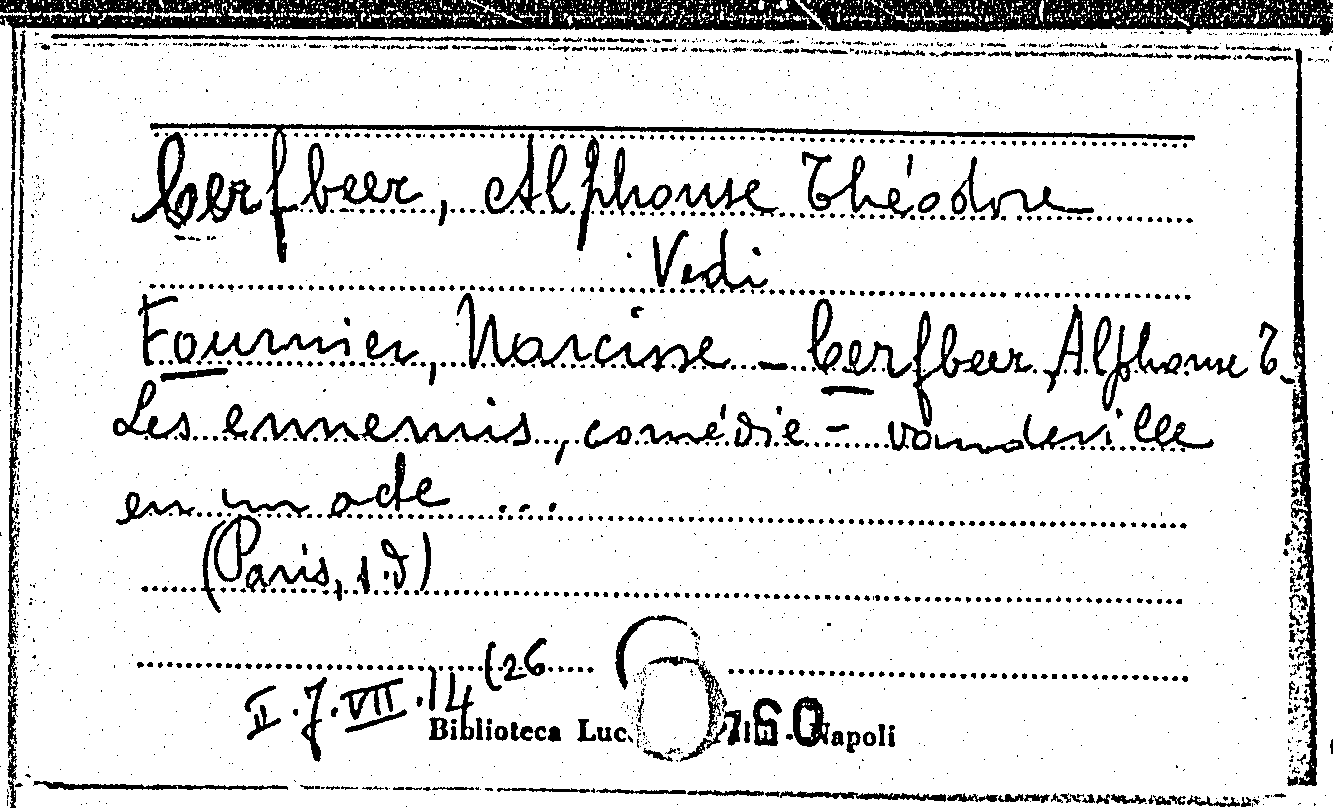 Cerfbeer, Alphonse Théodore
Vedi
Fournier, Narcisse - Cerfbeer, Alphonse T.
Les ennemis, comédie - vaudeville
en un acte ...
(Paris, s.d)
II.J.VII.14 (26
Biblioteca Luc 760 Napoli